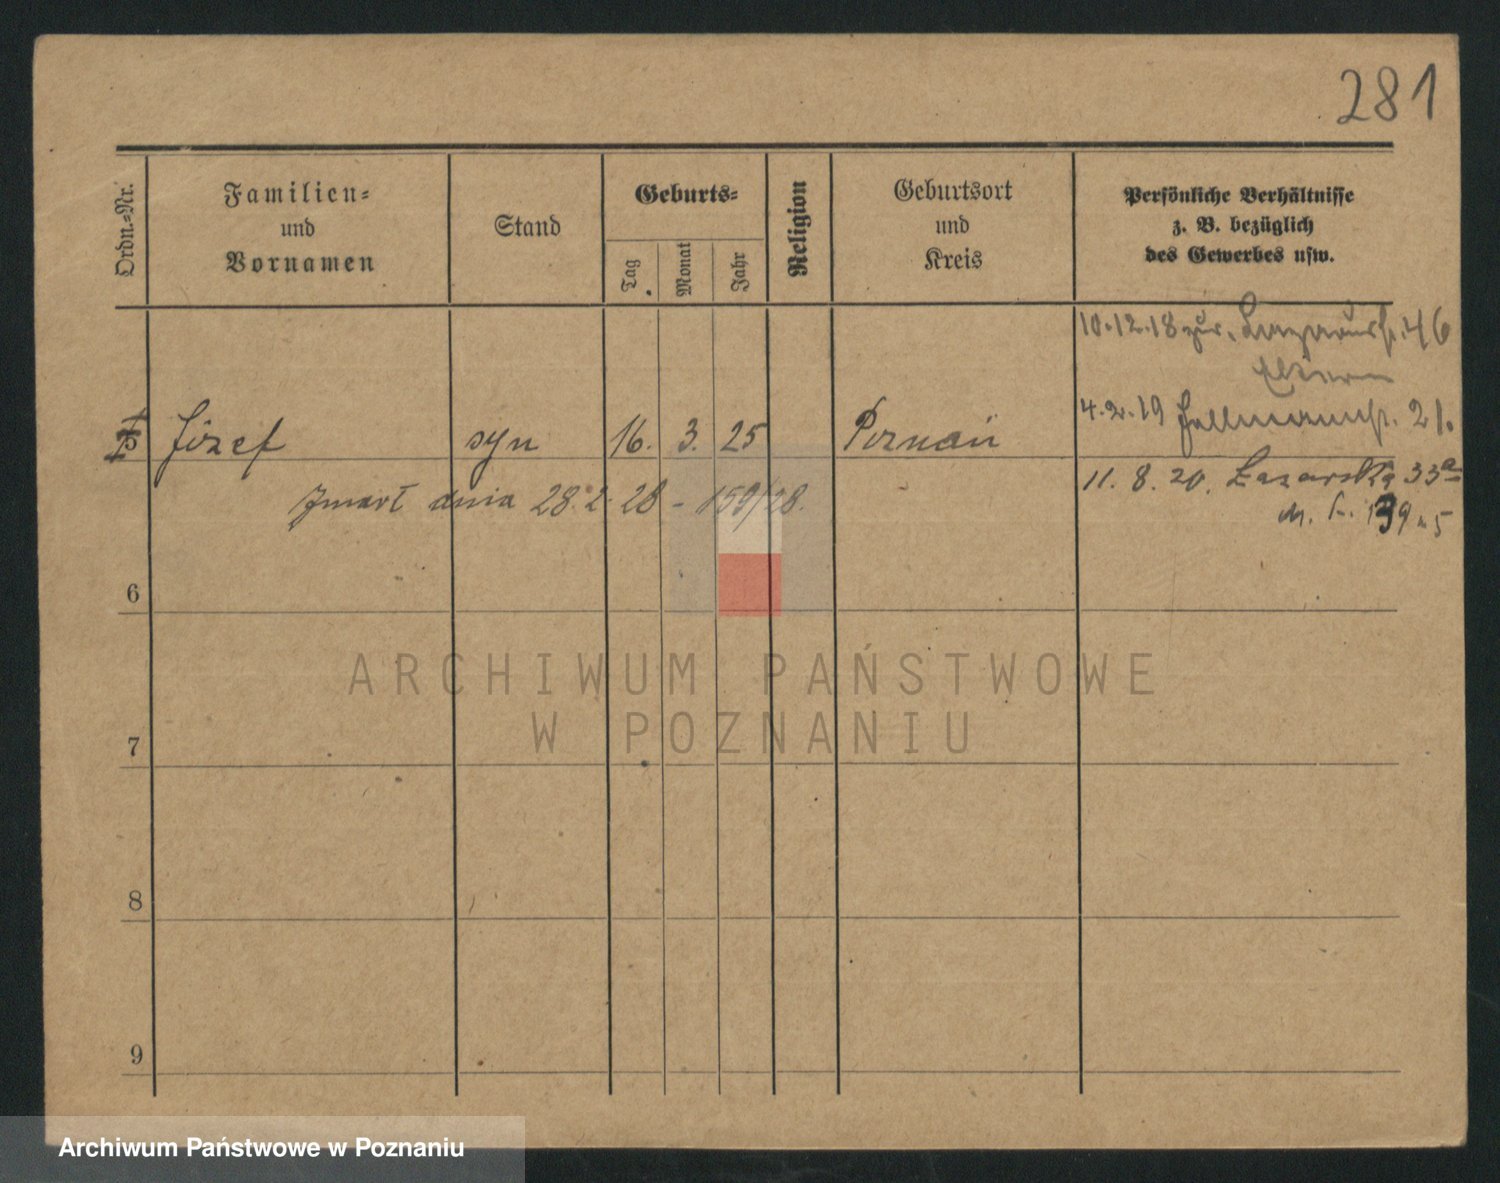 281
Ordn.-Nr.
Familien-
und
Vornamen
Stand
Geburts-
Tag
Monat
Jahr
Religion
Geburtsort
und
Kreis
Persönliche Verhältnisse
z. B. bezüglich
des Gewerbes usw.
10.12.18 zur. Lazarusst. 46
Eltern
4.2.19 21.
Józef syn 16. 3. 25 Poznań
11. 8. 20. Łazarska 33a
Zmarł dnia 28.2.28 - 159/28.
6
7
8
9
ARCHIWUM PAŃSTWOWE
W POZNANIU
Archiwum Państwowe w Poznaniu